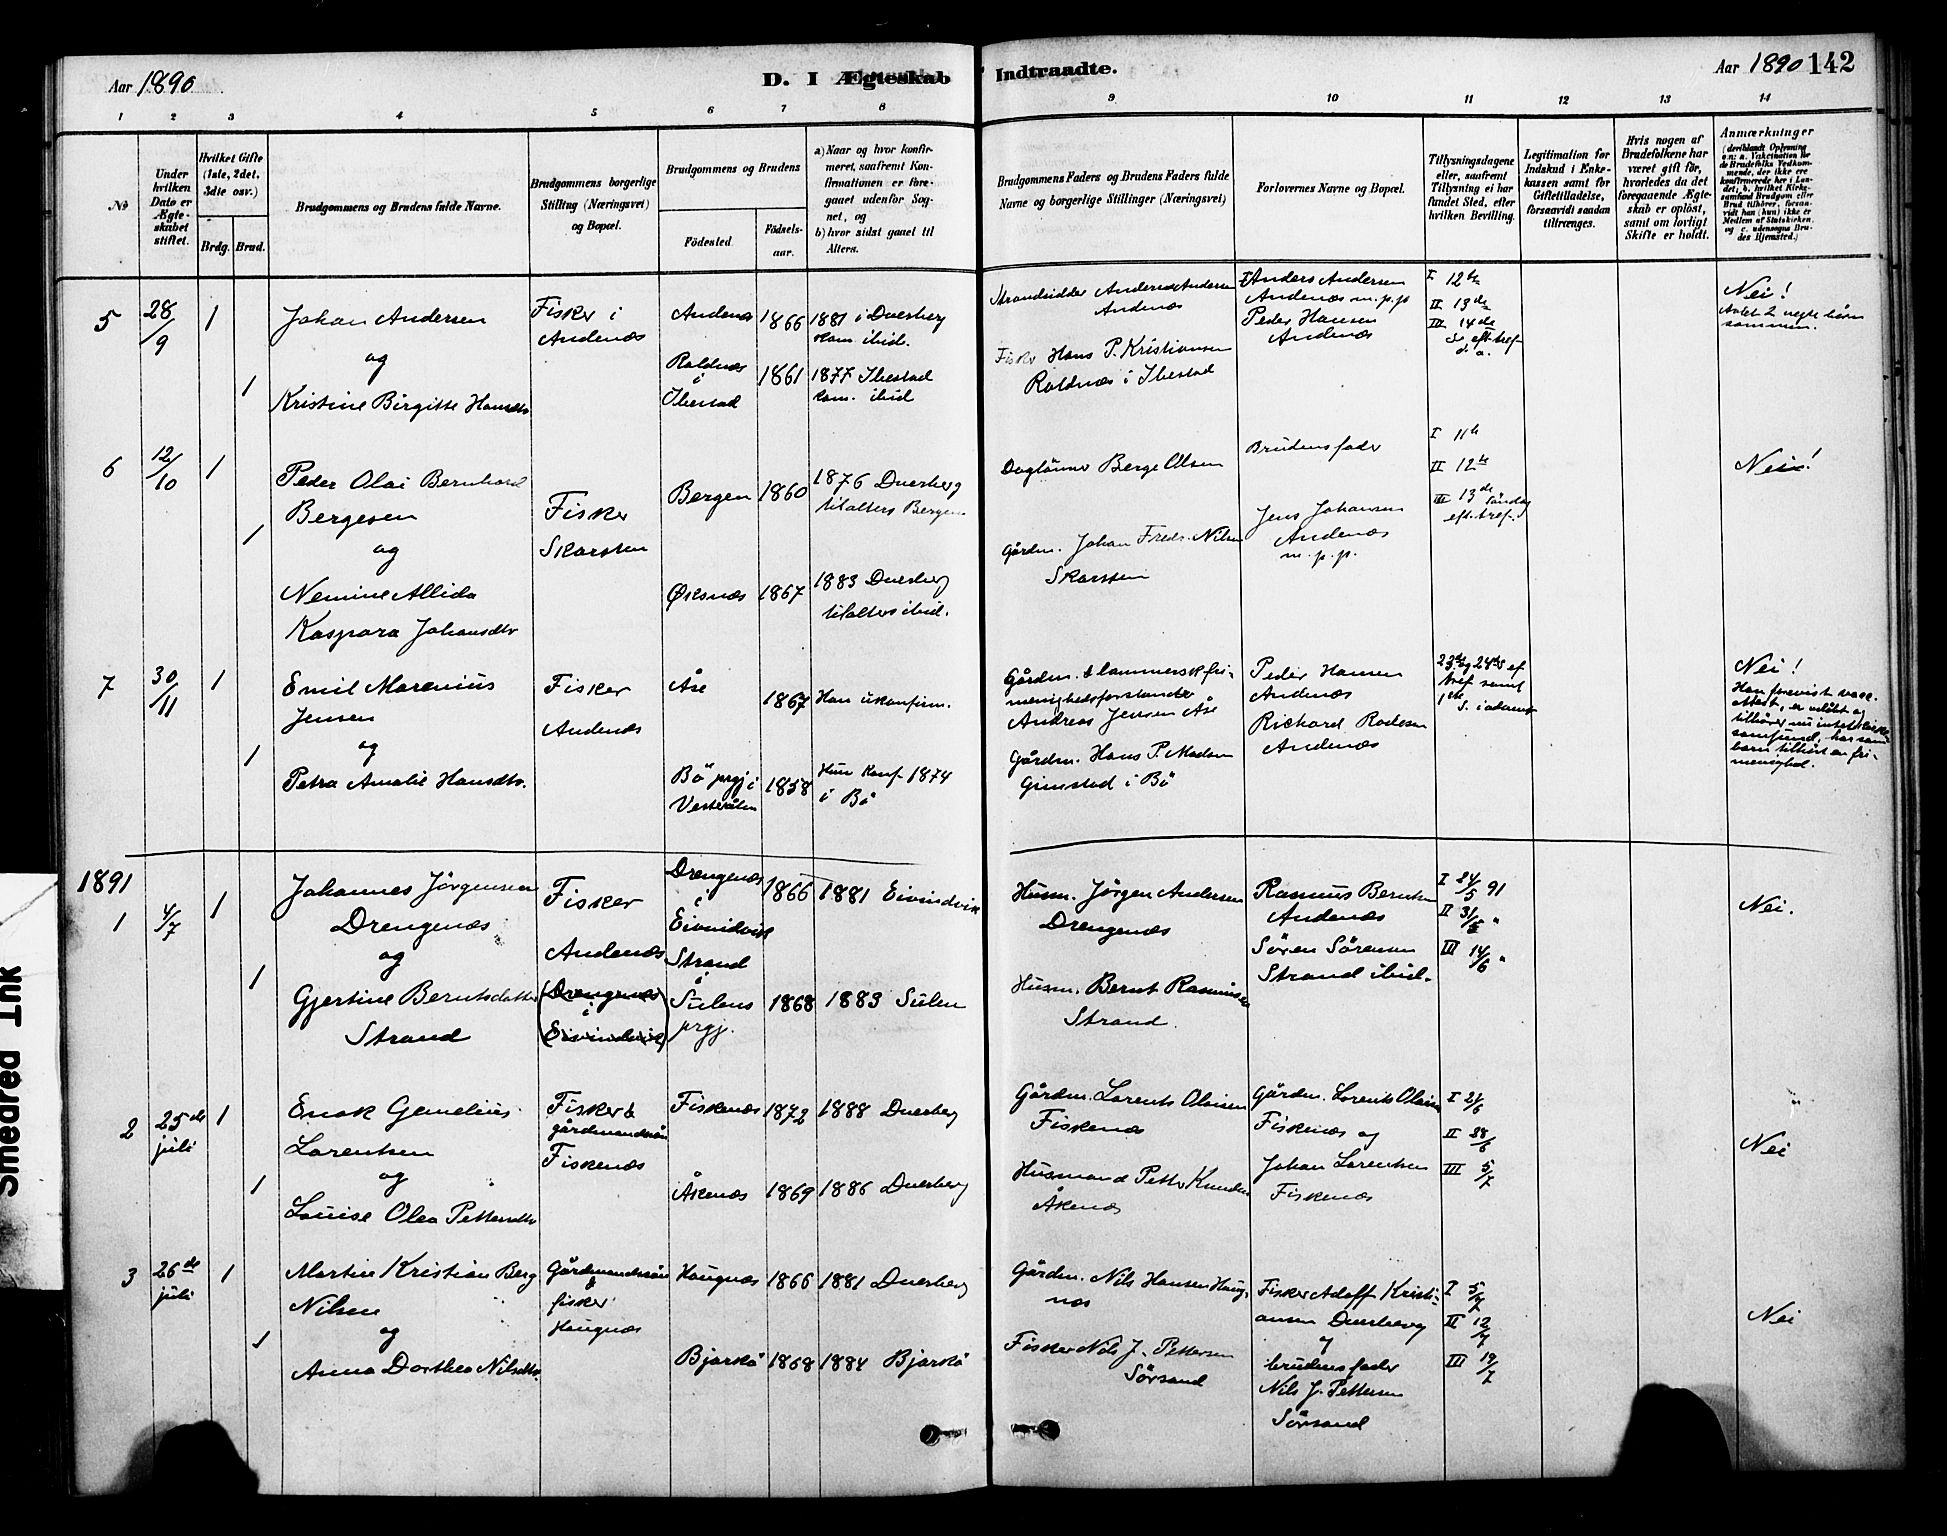 Aar 1890
D. I Ægteskab Indtraadte.
Aar 1890 142
1 2 3 4 5 6 7 8 9 10 11 12 13 14
No
Under hvilken Dato er Ægteskabet stiftet.
Hvilket Gifte (1ste, 2det, 3die osv.)
Brdg. Brud.
Brudgommens og Brudens fulde Navne.
Brudgommens borgerlige Stilling (Næringsvei) og Bopæl.
Brudgommens og Brudens
Fødested.
Fødselsaar.
a) Naar og hvor konfirmeret, saafremt Konfirmationen er foregaaet udenfor Sognet, og
b) hvor sidst gaaet til Alters.
Brudgommens Faders og Brudens Faders fulde Navne og borgerlige Stillinger (Næringsvei)
Forlovernes Navne og Bopæl.
Tillysningsdagene eller, saafremt Tillysning ei har fundet Sted, efter hvilken Bevilling.
Legitimation for Indskud i Enkekassen samt for Giftetilladelse, forsaavidt saadan tiltrænges.
Hvis nogen af Brudefolkene har været gift før, hvorledes da det foregaaende Ægteskab er opløst, samt om lovligt Skifte er holdt.
Anmærkninger
(deriblandt Oplysning om: a. Vakcination for de Brudefolks Vedkommende, der ikke ere konfirmerede her i Landet; b. hvilket Kirkesamfund Brudgom eller Brud tilhører, forsaavidt han (hun) ikke er Medlem af Statskirken, og c. udensogns Brudes Hjemsted.)
5 28/9 1
Johan Andersen
og
1 Kristine Birgitte Hansdtr
Fisker i
Andenæs
Andenæs 1866 1881 i Dverberg
kom. ibid.
Roldnæs
i
Ibestad
1861 1877 Ibestad
kom. ibid
Strandsidder Anders Andersen
Andenæs
Fisker Hans P. Kristiansen
Roldnæs i Ibestad
Anders Andersen
Andenæs m.p.p
Peder Hansen
Andenæs
I 12te
II 13de
III 14de
S. eft. tref.
Nei!
Avlet 2 uegte børn
sammen.
6 12/10 1
Peder Olai Bernhard
Bergesen
1 og
Nemine Allida
Kaspara Johansdtr
Fisker
Skarsten
Bergen 1860 1876 Dverberg
til alters Bergen
Øksnæs 1867 1883 Dverberg
til alters ibid.
Daglönner Berge Olsen
Gårdm. Johan Fredr. Nilsen
Skarsten
Brudens fader
Jens Johansen
Andenæs
m.p.p.
I 11te
II 12te
III 13de Söndag
eft. tref.
Nei!
7 30/11 1
Emil Marenius
Jensen
og
1
Petra Amalie Hansdtr.
Fisker
Andenæs
Åse 1867 Han ukonfirm.
Bö prgj i
Vesterålen
1858 Hun konf. 1874
i Bö
Gårdm. & lammersk frimenighedsforstander
Andreas Jensen Åse
Gårdm. Hans P. Madsen
Grimstad i Bö
Peder Hansen
Andenæs
Richard Rodesen
Andenæs
23de og 24de S. ef
tref samt
1ste
S. i advent
Nei!
Han forevist vacc.
attest, er udöbt og
tilhører nu intet kirke
samfund, har som
barn tilhört en frimenighed.
1891
1 4/7 1
Johannes Jörgensen
Drengenæs
og
1
Gjertine Berntsdatter
Strand
Fisker
Andenæs
(Drengenæs
i
Eivindvik)
Drengenæs
i
Eivindvik
1866 1881 Eivindvik
Strand
i
Sulens
prgj.
1868 1883 Sulen
Husm. Jörgen Andersen
Drengenæs
Husm. Bernt Rasmussen
Strand
Rasmus Berntsen
Andenæs
Sören Sörensen
Strand ibid.
I 24/5 91
II 31/5 "
III 14/6 "
Nei.
2 25de
juli 1
Enok Gemelius
Lorentsen
og
1
Louise Olea Pettersdtr
Fisker &
gårdmandssön
Fiskenæs
Fiskenæs 1872 1888 Dverberg
Åkenæs 1869 1886 Dverberg
Gårdm. Lorents Olaisen
Fiskenæs
Husmand Petter Knudsen
Åkenæs
Gårdm. Lorents Olaisen
Fiskenæs og
Johan Lorentsen
Fiskenæs
I 21/6
II 28/6
III 5/7
Nei
3 26de
juli 1
Martin Kristian Berg
Nilsen
og
1
Anna Dorthea Nilsdtr.
Gårdmandssön
&
fisker
Haugnæs
Haugnæs 1866 1881 Dverberg
Bjarkö 1868 1884 Bjarkö
Gårdm. Nils Hansen Haugnæs
Fisker Nils J. Pettersen
Sörsand
Fisker Adolf Kristiansen Dverberg
og
brudens fader
Nils J. Pettersen
Sörsand
I 5/7
II 12/7
III 19/7
Nei
Smedred Ink